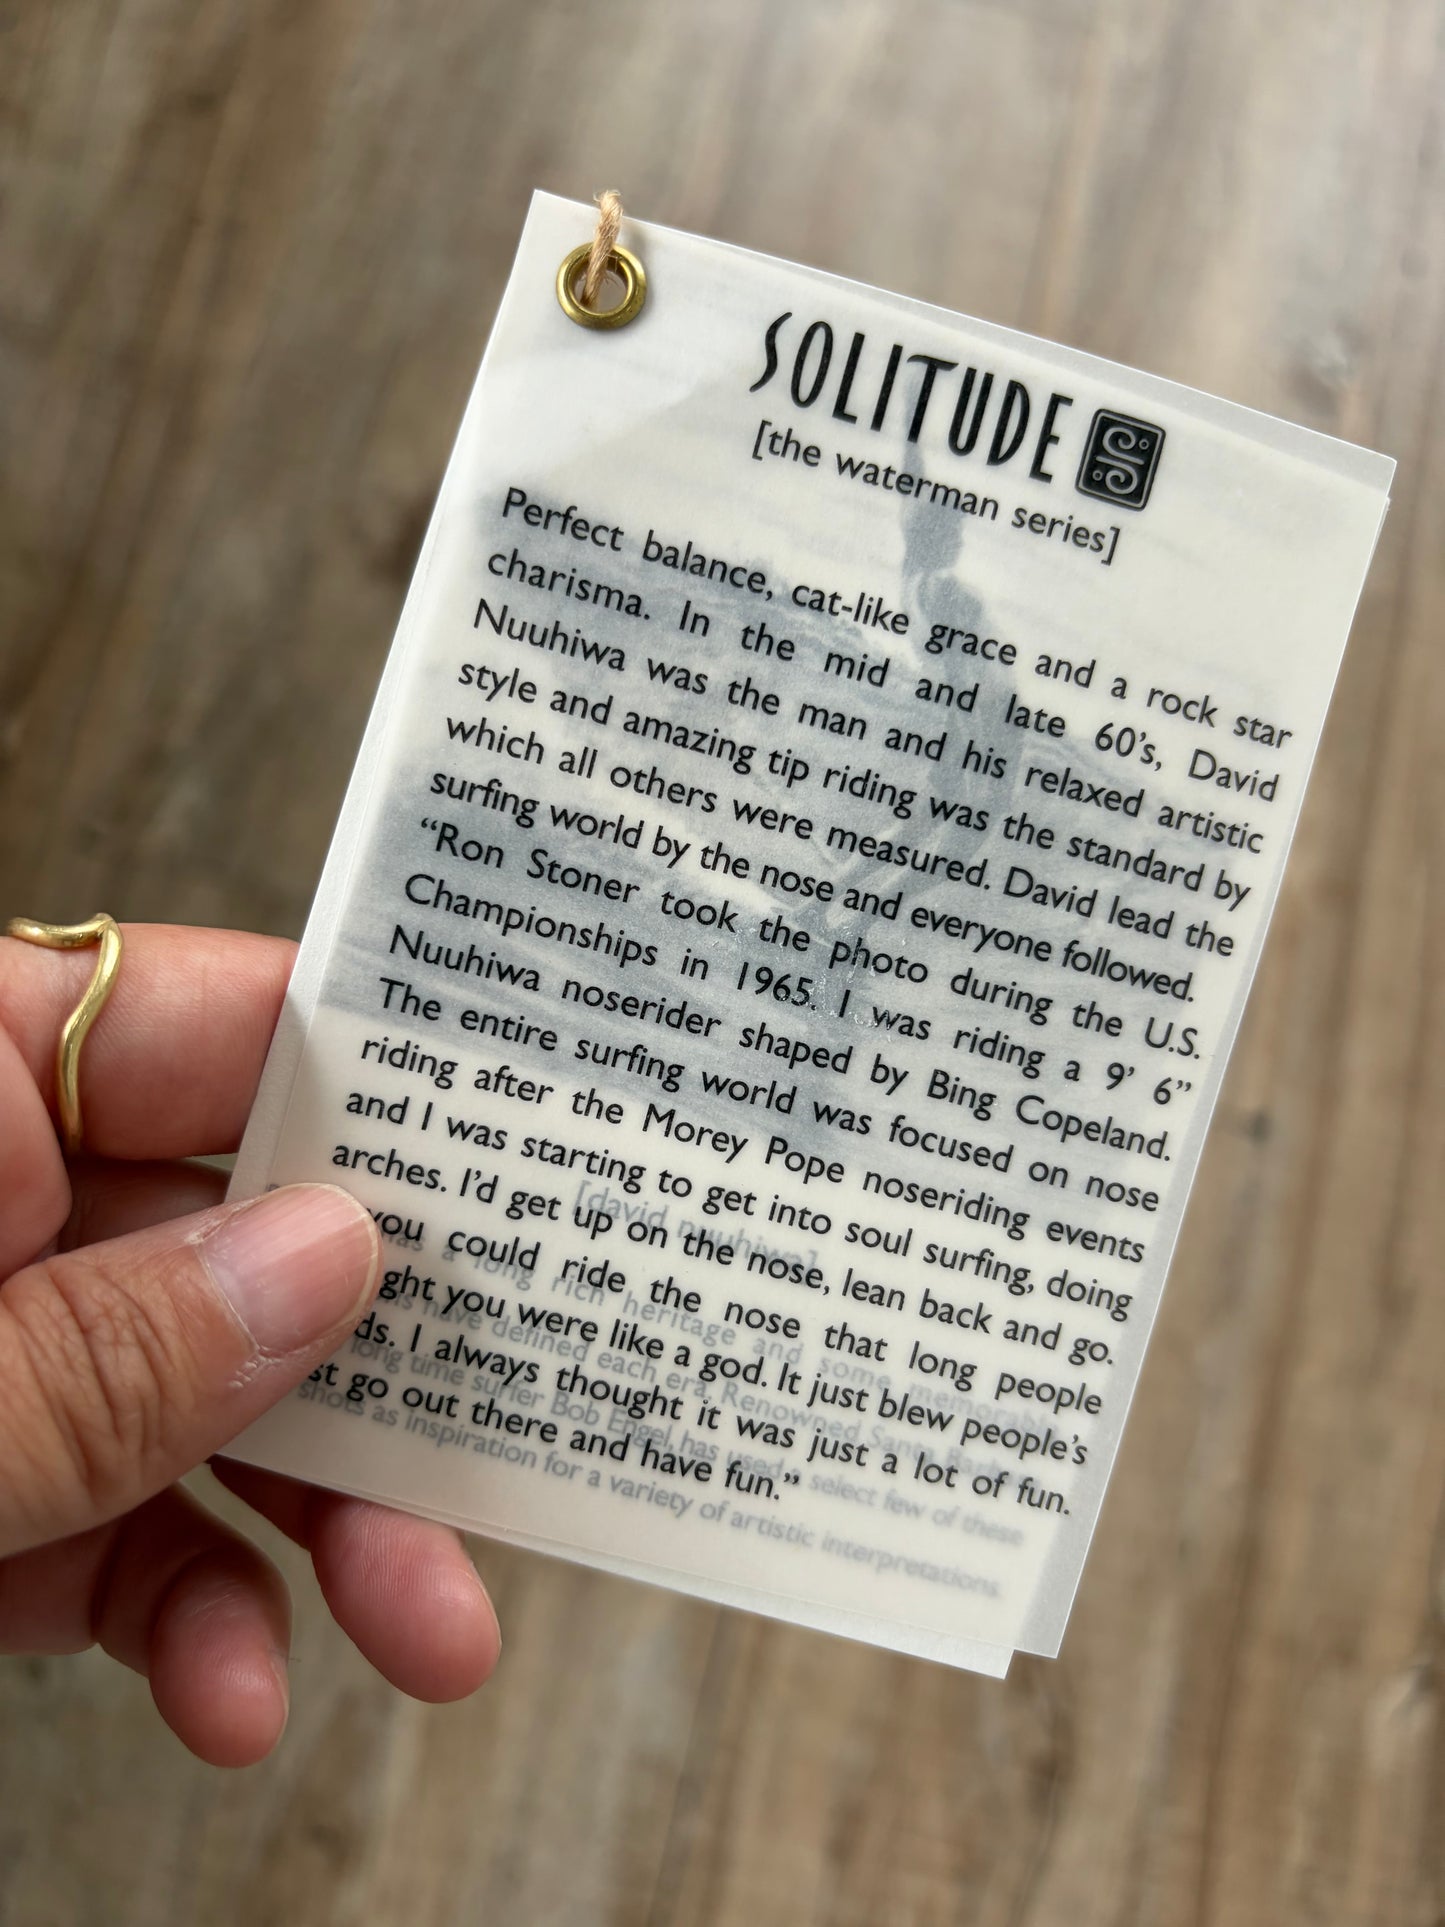 SOLITUDE
[the waterman series]
Perfect balance, cat-like grace and a rock star
charisma. In the mid and late 60's, David
Nuuhiwa was the man and his relaxed artistic
style and amazing tip riding was the standard by
which all others were measured. David lead the
surfing world by the nose and everyone followed.
“Ron Stoner took the photo during the U.S.
Championships in 1965. I was riding a 9’ 6”
Nuuhiwa noserider shaped by Bing Copeland.
The entire surfing world was focused on nose
riding after the Morey Pope noseriding events
and I was starting to get into soul surfing, doing
arches. I’d get up on the nose, lean back and go.
you could ride the nose that long people
you were like a god. It just blew people’s
I always thought it was just a lot of fun.
go out there and have fun.”
[david nuuhiwa]
a long rich heritage and some memorable
have defined each era. Renowned Santa
long time surfer Bob Engel, has used a select few of these
shots as inspiration for a variety of artistic interpretations.